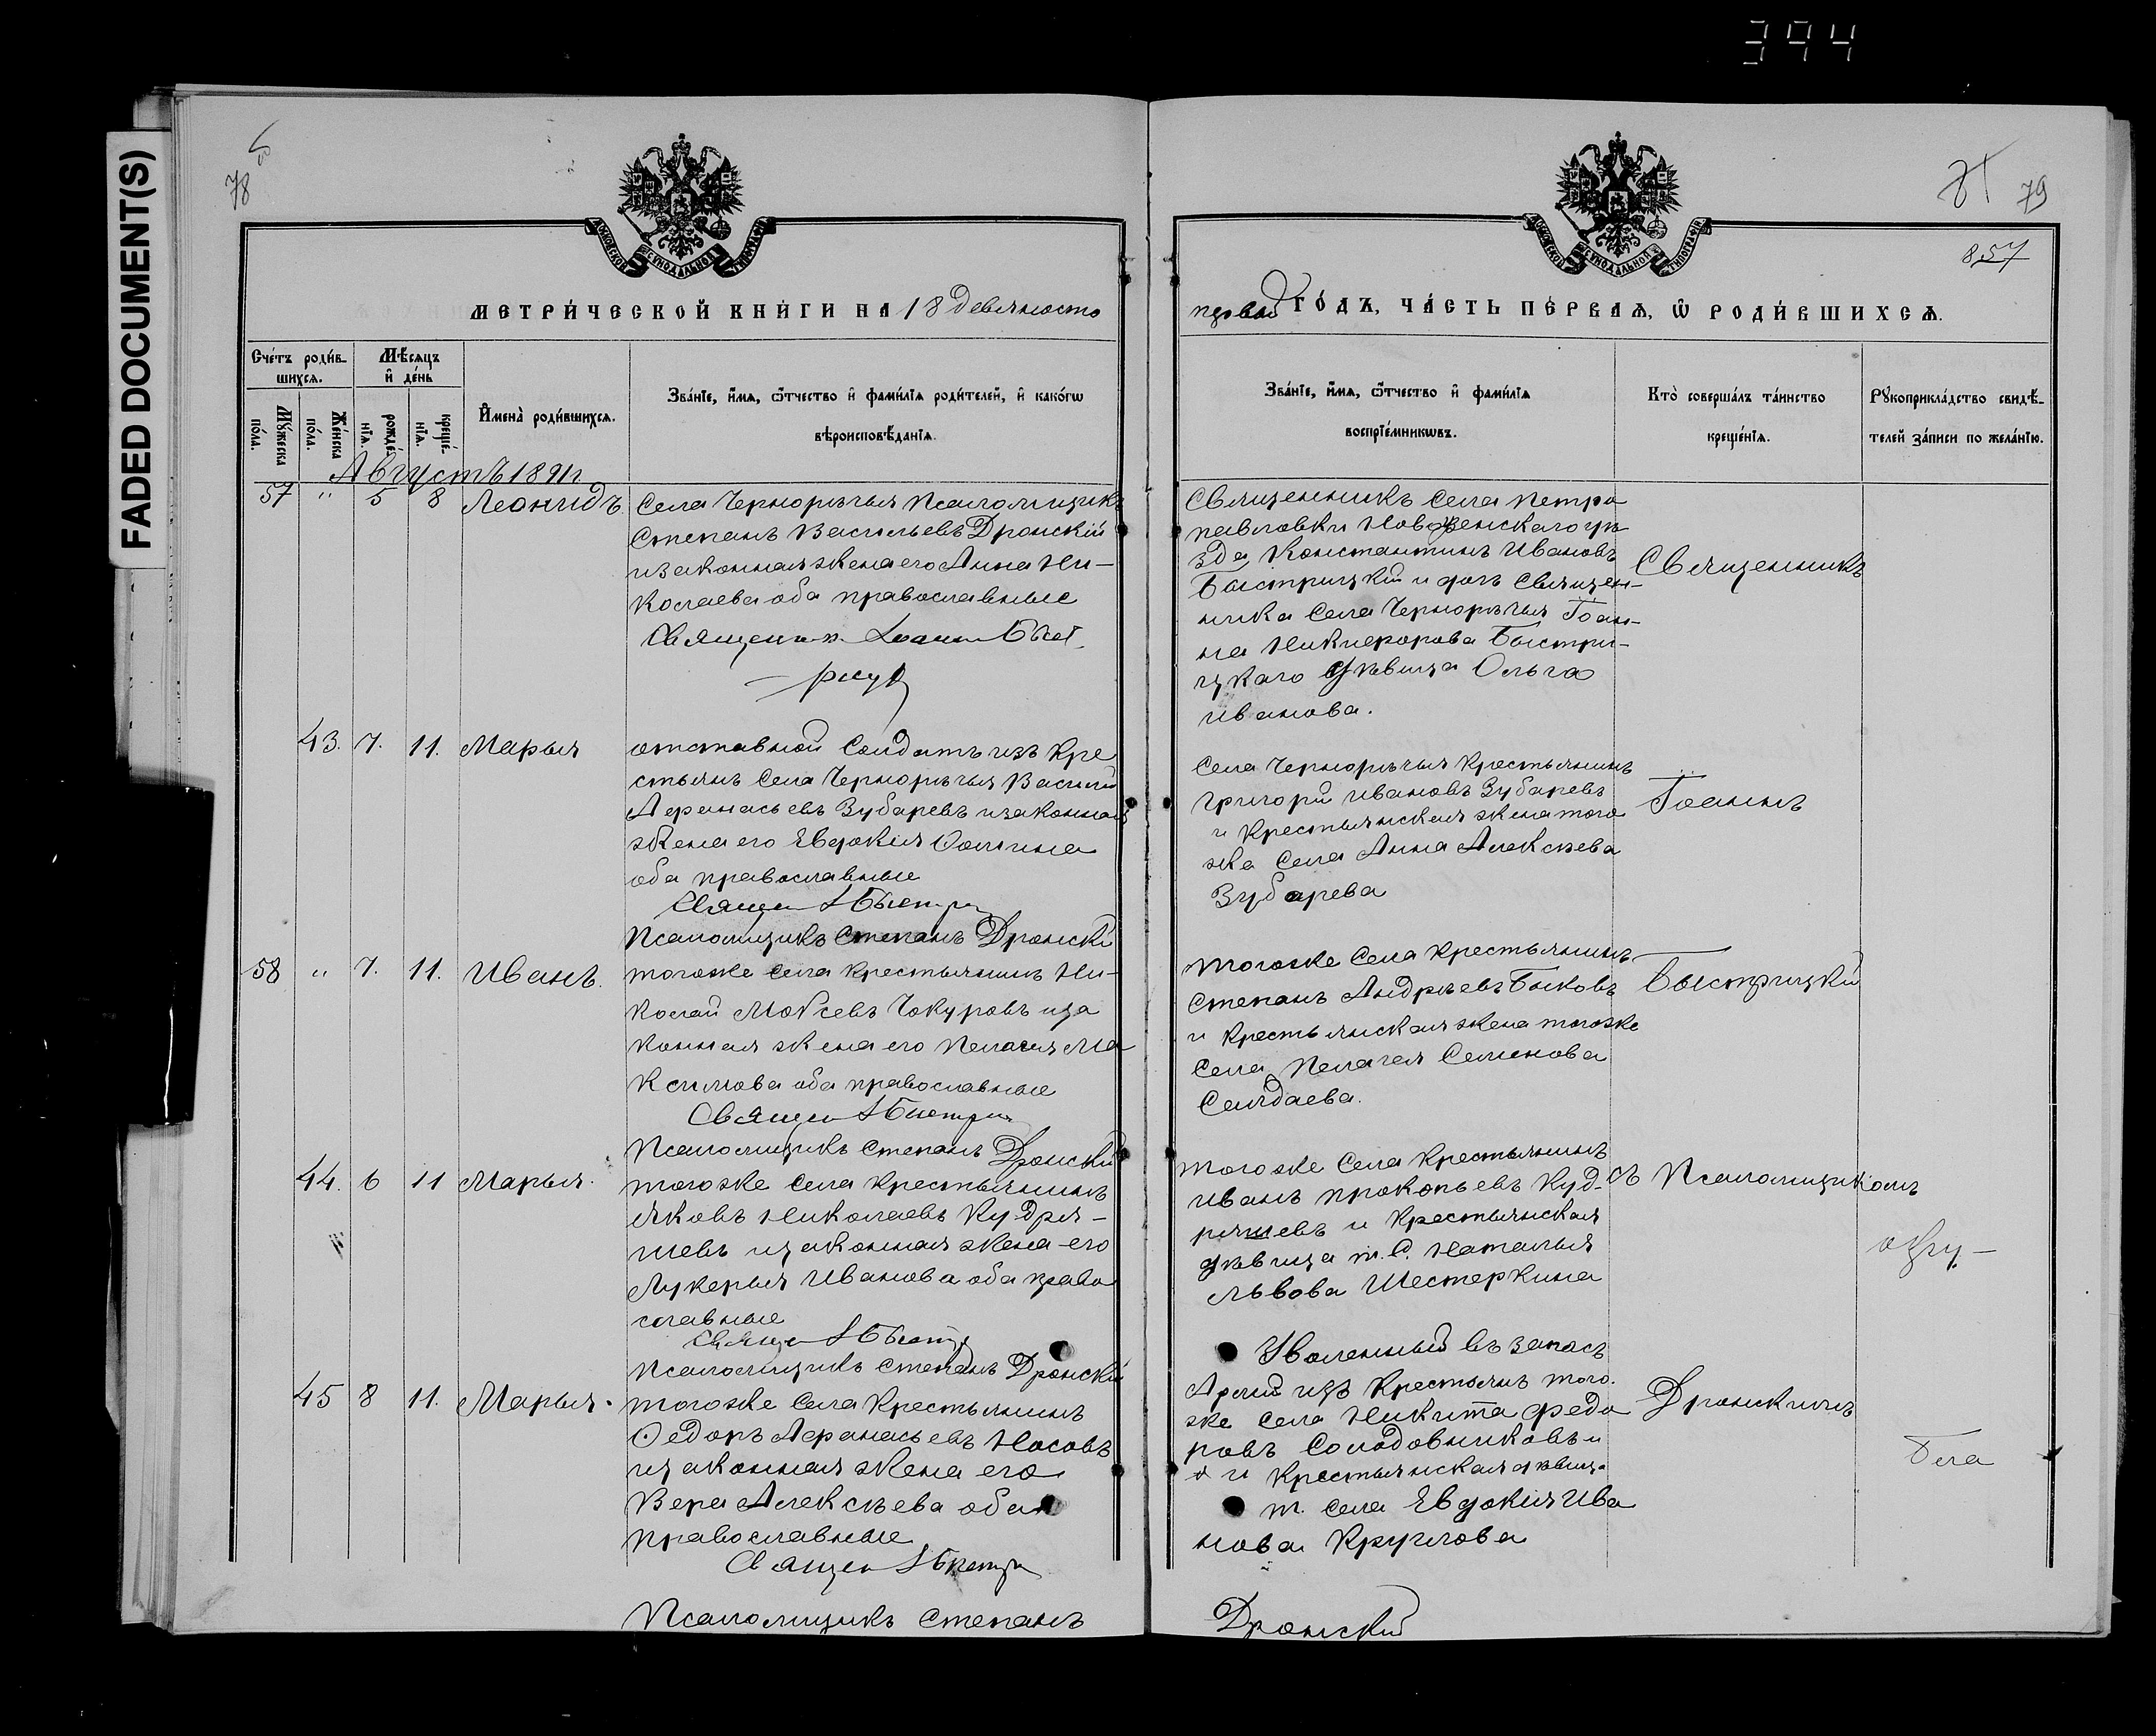 394
FADED DOCUMENT(S)
78
79
857
МОСКОВСКОЙ СѴНОДАЛЬНОЙ ТИПОГРАФІИ
МОСКОВСКОЙ СѴНОДАЛЬНОЙ ТИПОГРАФІИ
МЕТРИ́ЧЕСКОЙ КНИ́ГИ НА 18 девяносто
первый ГО́ДЪ, ЧА́СТЬ ПЕ́РВАѦ, Ѿ РОДИ́ВШИХСѦ.
Сче́тъ роди́в-
шихсѧ.
Мѣ́сѧцъ
и҆ де́нь
Мꙋ́жеска
по́ла.
Же́нска
по́ла.
рожде́-
нїѧ.
креще́-
нїѧ.
И҆мена̀ роди́вшихсѧ.
Зва́нїе, и҆́мѧ, ѻ҆́тчество и҆ фами́лїѧ роди́телей, и҆ како́гѡ
вѣроисповѣ́данїѧ.
Зва́нїе, и҆́мѧ, ѻ҆́тчество и҆ фами́лїѧ
воспрїе́мникѡвъ.
Кто̀ соверша́лъ та́инство
креще́нїѧ.
Рꙋкоприкла́дство свидѣ́-
телей за́писи по жела́нїю.
Августъ 1891 г.
57 " 5 8 Леонидъ
Села Чернорѣчья Псаломщикъ
Степанъ Васильевъ Дронскій
и законная жена его Анна Ни-
колаева оба православные
Священник Іоанн Быст
рицк
Священникъ Села Петро
павловки Новоузенскаго уѣ
зда, Константинъ Ивановъ
Быстрицкій и дочь Священ-
ника Села Чернорѣчья Іоан-
на Никифорова Быстри-
цкаго дѣвица Ольга
Иванова.
Священникъ
43. 7. 11. Марья
отставной Солдатъ изъ Кре
стьянъ Села Чернорѣчья Васили
Афанасьевъ Зубаревъ и законная
жена его Евдокія Фомина
оба православные
Священ І Быстри
Псаломщикъ Степанъ Дронскі
Села Чернорѣчья Крестьянинъ
Григорій Ивановъ Зубаревъ
и Крестьянская жена того
же Села Анна Алексѣева
Зубарева
Іоаннъ
58 " 7. 11. Иванъ.
тогоже Села Крестьянинъ Ни-
колай Мокѣевъ Чокуровъ и за
конная жена его Пелагея Ма
ксимова оба православные
Священ І Быстри
Псаломщикъ Степанъ Дронскій
тогоже Села Крестьянинъ
Степанъ Андрѣевъ Быковъ
и Крестьянская жена тогоже
Села Пелагея Семенова
Солдаева.
Быстрицкій
44. 6 11 Марья.
тогоже Села Крестьянинъ
Яковъ Николаевъ Кудря-
шевъ и законная жена его
Лукерья Иванова оба право
славные
Священ І Быст
Псаломщикъ Степанъ Дронскій
тогоже Села Крестьянинъ
Иванъ Прокопьевъ Куд-
ряшевъ и Крестьянская
дѣвица т. С. Наталья
Львова Шестеркина
съ Псаломщикомъ
45 8 11. Марья.
тогоже Села Крестьянинъ
Ѳедоръ Афанасьевъ Носовъ
и законная жена его
Вера Алексѣева оба
православные
Священ І Быстри
Уволенный въ запасъ
Армій изъ Крестьянъ того
же Села Никита Федо
ровъ Солодовниковъ и
и Крестьянская дѣвица
т. Села Евдокія Ива
нова Круглова
Дронскимъ
Псаломщикъ Степанъ
Дронскій